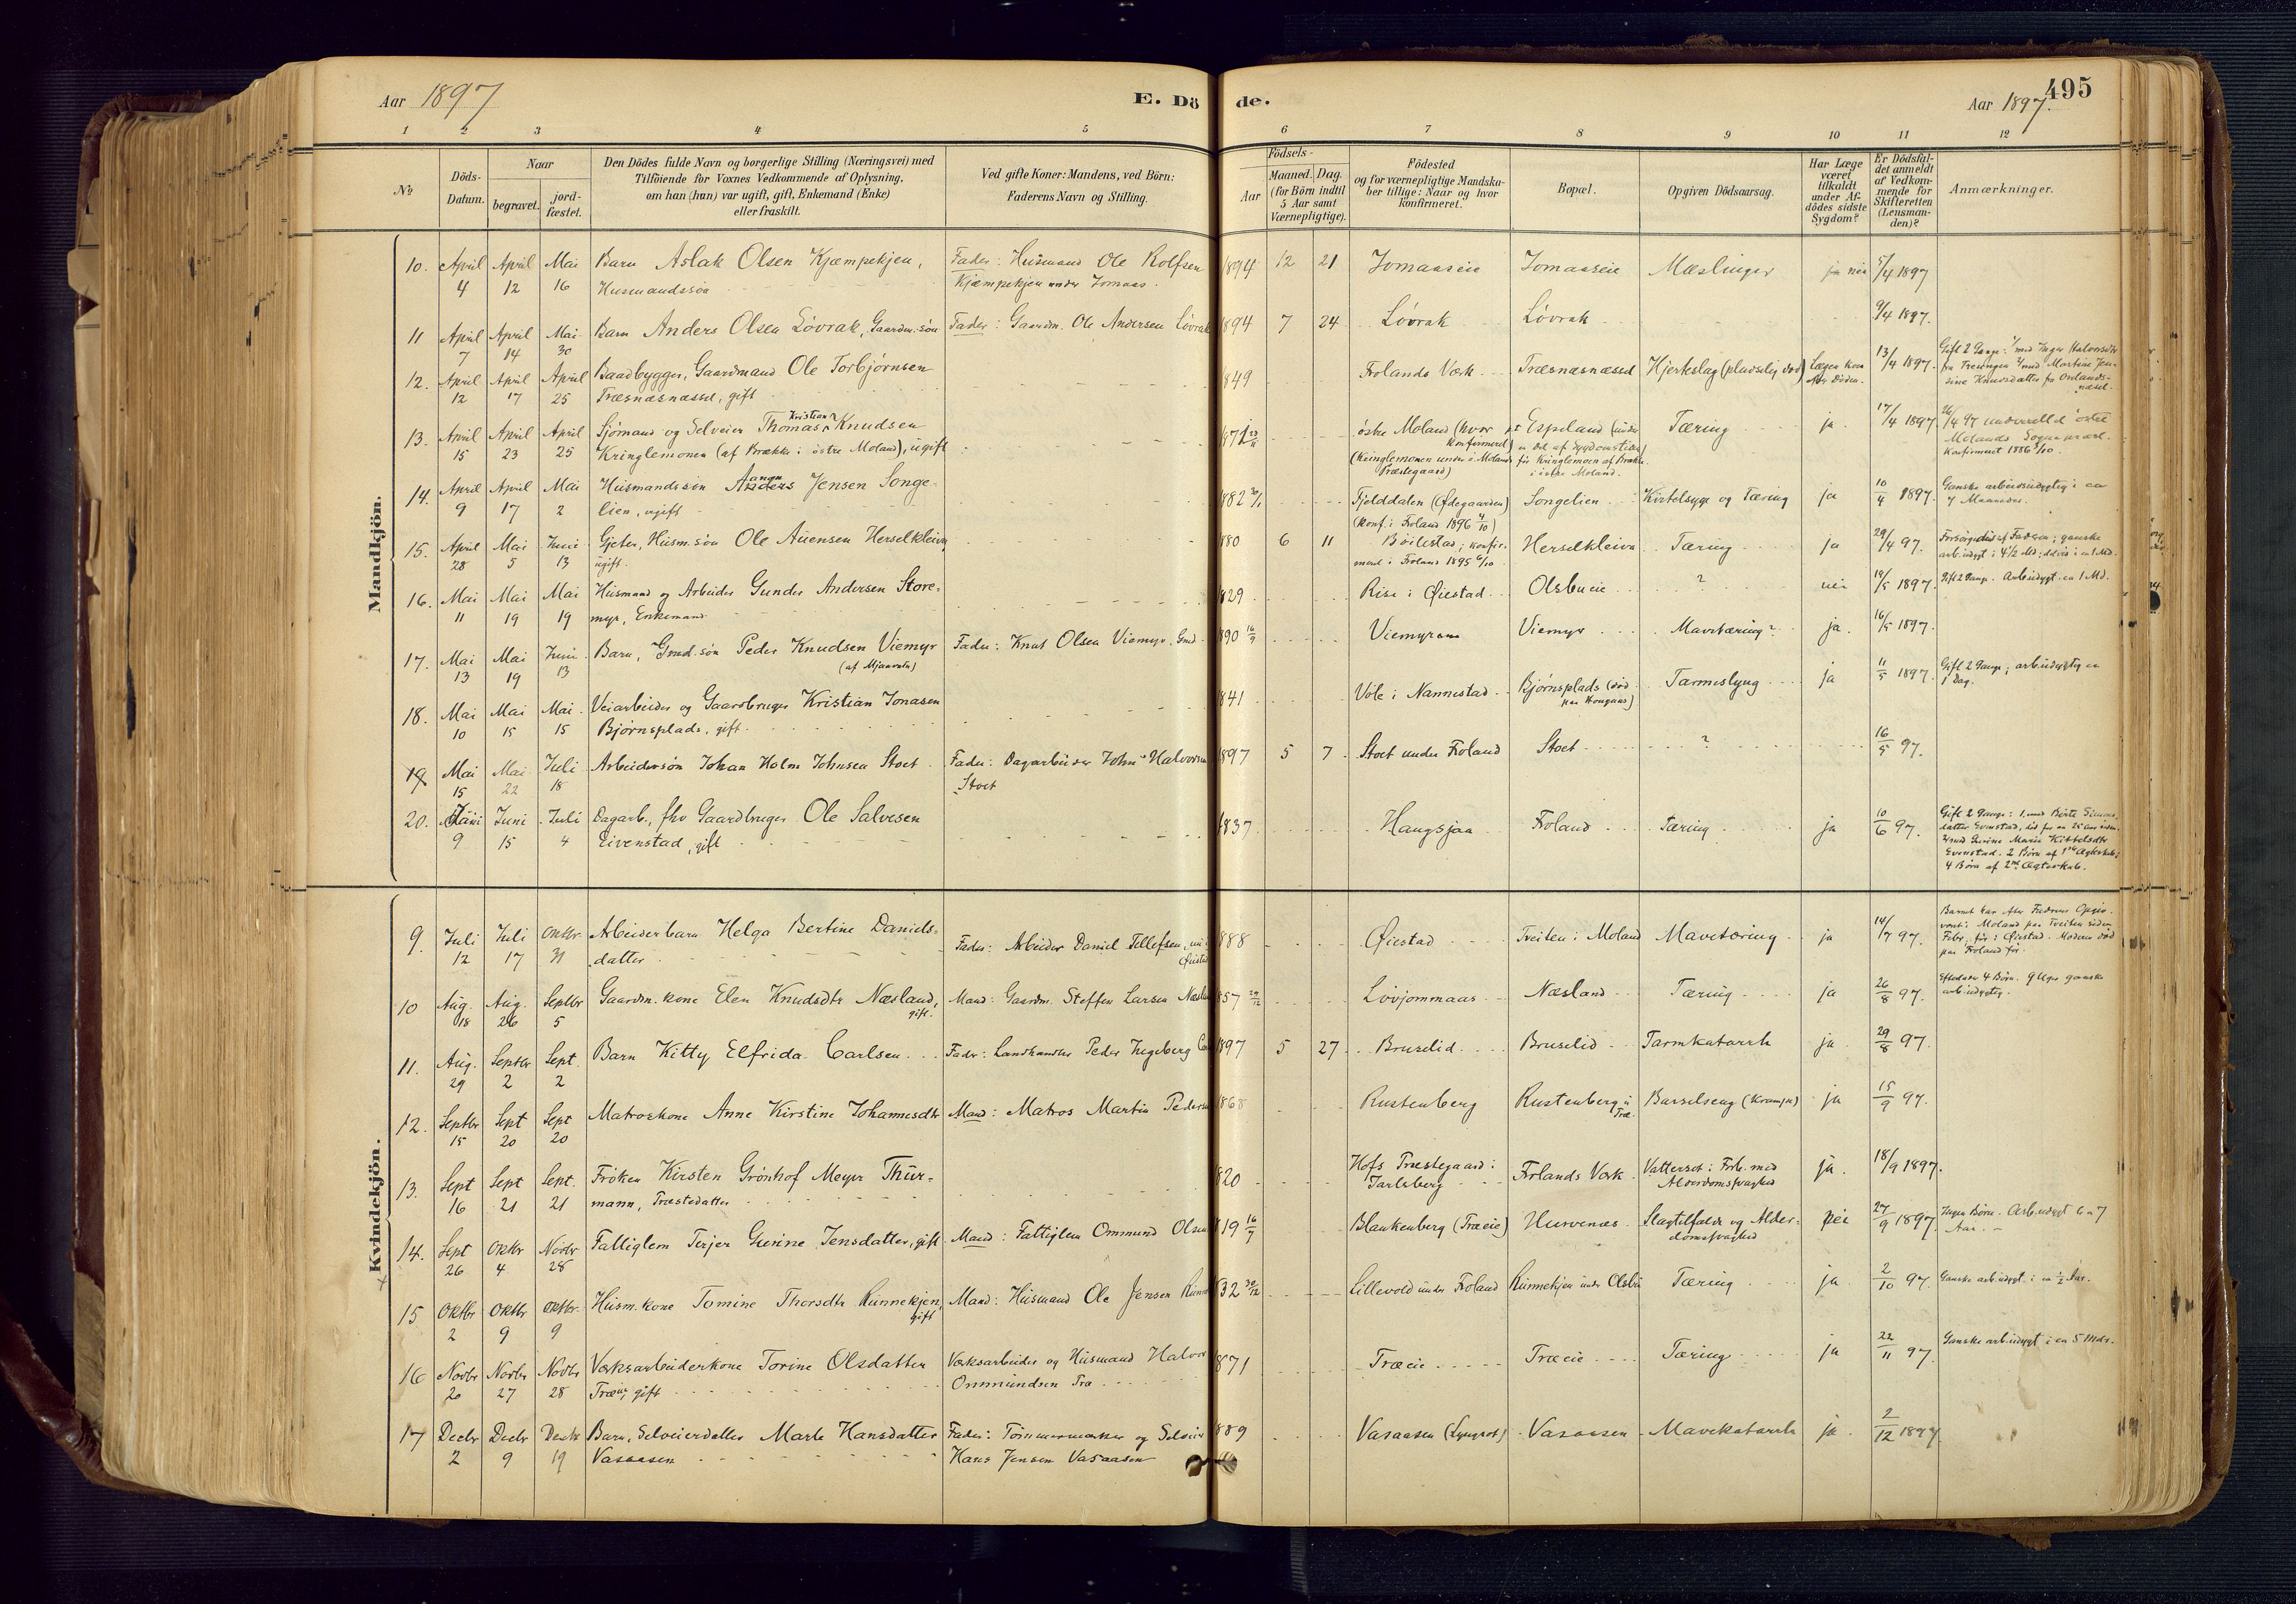 Aar 1897
E. Dö de.
495
Aar 1897.
1 2 3 4 5 6 7 8 9 10 11 12
No
Döds-
Datum.
Naar
begravet.
jord-
fæstet.
Den Dödes fulde Navn og borgerlige Stilling (Næringsvei) med
Tilföiende for Voxnes Vedkommende af Oplysning,
om han (hun) var ugift, gift, Enkemand (Enke)
eller fraskilt.
Ved gifte Koner: Mandens, ved Börn:
Faderens Navn og Stilling.
Födsels-
Aar
Maaned. Dag.
(for Börn indtil
5 Aar samt
Værnepligtige).
Födested
og for værnepligtige Mandska-
ber tillige: Naar og hvor
konfirmeret.
Bopæl.
Opgiven Dödsaarsag.
Har Læge
været
tilkaldt
under Af-
dödes sidste
Sygdom?
Er Dödsfal-
det anmeldt
af Vedkom-
mende for
Skifteretten
(Lensman-
den)?
Anmærkninger.
Mandkjön.
10. April 4 April 12 Mai 16 Barn Aslak Olsen Kjæmpekjen, Fader: Husmand Ole Rolfsen 1894 12 21 Jomaaseie Jomaaseie Mæslinger ja nei 5/4 1897
Husmandssøn Kjæmpekjen under Jomaas.
11 April 7 April 14 Mai 30 Barn Anders Olsen Løvrak, Gaardm. søn Fader: Gaardm. Ole Andersen Løvrak 1894 7 24 Løvrak Løvrak 9/4 1897.
12. April 12 April 17 April 25 Baadbygger, Gaardmand Ole Torbjørnsen 1849 Frolands Værk Træsnæsnæssel Hjerteslag (pludselig død) Lægen kom efter Døden. 13/4 1897. Gift 2 Gange: 1/ med Inger Halvorsdtr
Træsnæsnæssel, gift fra Fresingen 2/ med Martine Jen-
sine Knudsdatter fra Ørlands-
næsel.
13. April 15 April 23 April 25 Sjømand og Selveier Thomas Kristian Knudsen 1871 østre Moland (hvor konfirmeret) Espeland Tæring ja. 17/4 1897. 26/4 97 underrettet østre
Kringlemonen (af Brække i østre Moland), ugift (Kringlemonen under ø. Molands Præstegaard) Molands Sognepræst.
i østre Moland. Konfirmeret 1886 3/10.
14. April 9 April 17 Mai 2 Husmandssøn Anders Jensen Songe- 1882 Fjelddalen (Ødegaarden) Songelien Kirtelsyge og Tæring ja 10/4 1897. Ganske arbeidsudygtig i ca
lien, ugift (konf. i Froland 1896 4/10) 7 Maaneder.
15. April 28 Mai 5 Juni 13 Gjeter, Husm. søn Ole Auensen Herselkleiva, 1880 6 11 Bøilestad; konfir- Herselkleiva Tæring ja 29/4 97. Forsørgedes af Faderen; ganske
ugift. meret i Froland 1895 6/10. arb.udygt i 4 1/2 Md;
16. Mai 11 Mai 19 Mai 19 Husmand og Arbeider Gunder Andersen Store- 1829 Rise i Øiestad Olsbueie ? nei 19/5 1897. Gift 2 Gange. Arb.udygt. ca 1 Md.
myr, Enkemand
17. Mai 13 Mai 19 Juni 13 Barn, Gmd. søn Peder Knudsen Viemyr Fader: Knut Olsen Viemyr, Gmd. 1890 16/9 Viemyren Viemyr Mavetæring? ja. 16/5 1897.
(af Mjaavatn)
18. Mai 10 Mai 15 Mai 15 Veiarbeider og Gaardbruger Kristian Jonasen 1841 Vole i Nannestad Bjørnsplads (død Tarmeslyng ja 11/5 1897. Gift 2 Gange; arb.udygtig ca
Bjørnsplads, gift 1 Dag.
19 Mai 15 Mai 22 Juli 18 Arbeidersøn Johan Holm Johnsen Stoet Fader: Dagarbeider John Halvorsen 1897 5 7 Stoet under Froland Stoet ? 16/5 97.
Stoet
20. Juni 9 Juni 15 Juli 4 Dagarb., fhv Gaardbruger Ole Salvesen 1837 Haugsjaa Froland Tæring ja 10/6 97. Gift 2 Gange: 1. med Birte Simons-
Eivenstad, gift datter Evenstad, død for ca 25 Aar siden.
2/ med Gurine Marie Kittelsdtr
Evenstad. 2 Børn af 1ste Ægteskab;
4 Børn af 2det Ægteskab.
Kvindekjön.
9. Juli 12 Juli 17 Oktbr 31 Arbeiderbarn Helga Bertine Daniels- Fader: Arbeider Daniel Tellefsen, 1888 Øiestad Treiten i Moland Mavetæring ja 14/7 97. Barnet har efter Faderens Opgiv.
datter været i Moland paa Treiten siden
Febr., før i Øiestad. Moderen død
paa Froland før.
10 Aug. 18 Aug. 26 Septbr 5 Gaardm. kone Elen Knudsdtr Næsland, gift. Mand: Gaardm. Steffen Larsen Næsland 1857 29/12 Løvjommaas Næsland Tæring ja 26/8 97. Efterlader 4 Børn. 9 Uger ganske
arb.udygtig.
11. Aug. 29 Septbr 2 Sept. 2 Barn Kitty Elfrida Carlsen Fader: Landhandler Peder Ingeberg 1897 5 27 Bruselid Bruselid Tarmkatarrh ja 29/8 97.
12. Septbr 15 Sept 20 Sept 20 Matroskone Anne Kirstine Johannesdtr Mand: Matros Martin Pedersen 1868 Rustenberg Rustenberg i Træ. Barselseng (Krampe) ja 15/9 97.
13. Sept 16 Sept 21 Sept. 21 Frøken Kirsten Grønhof Meyer Thür- 1820 Hofs Præstegaard i Frolands Værk Vattersot i Forb. med ja. 18/9 1897.
mann, Præstedatter Jarlsberg Alderdomssvaghed
14. Sept 26 Oktbr 4 Novbr 28 Fattiglem Terjer Gurine Jensdatter, gift Mand: Fattiglem Ommund Olsen 1819 16/7 Blankenberg (Træeie) Hurvenæs Slagtilfælde og Alder- nei 27/9 1897. Ingen Børn. Arb.udygt 6 a 7
domssvaghed Aar.
15 Oktbr 2 Oktbr 9 Oktbr. 9 Husm. kone Tomine Thorsdtr Rünnekjen, gift Mand: Husmand Ole Jensen 1832 Lillevold under Froland Rünnekjen under Olsbu Tæring ja. 2/10 97. Ganske arb.udygt. i ca 1/2 Aar.
16 Novbr 20 Novbr 27 Novbr 28 Værksarbeiderkone Torine Olsdatter Værksarbeider og Husmand Halvor 1871 Træeie Træeie Tæring ja 22/11 97. Ganske arb.udygt i ca 5 Mdr.
Træeie, gift Ommundsen Træ
17 Decbr 2 Decbr 9 Decbr 19 Barn, Selveierdatter Marte Hansdatter Fader: Tømmermærker og Selveier 1889 Vasaasen (Lyngrot) Vasaasen Mavekatarrh ja. 2/12 1897
Vasaasen Hans Jensen Vasaasen